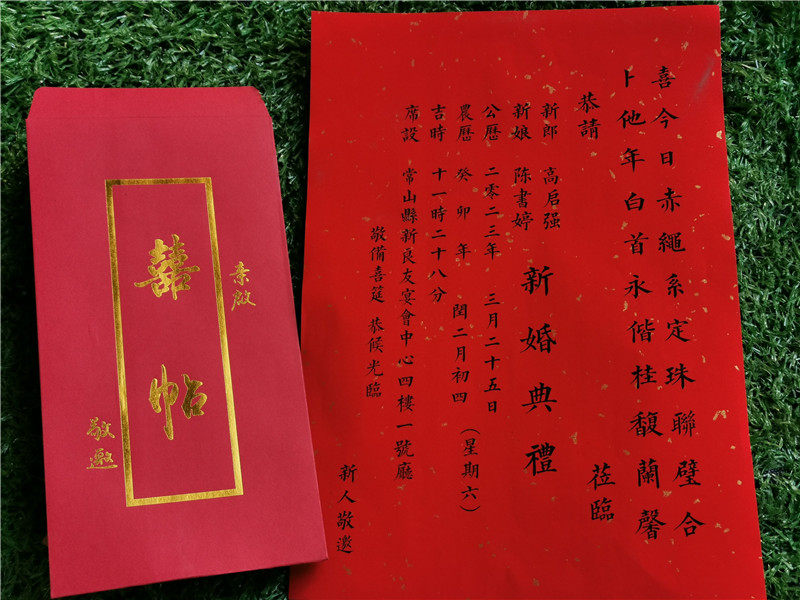 喜今日赤繩系定珠聯璧合
卜他年白首永偕桂馥蘭馨
恭請 莅臨
新郎 高启强
新娘 陈書婷
新婚典禮
公曆 二零二三年 三月二十五日
農曆 癸卯年 閏二月初四 (星期六)
吉時 十一時二十八分
席設 常山縣新良友宴會中心四樓一號廳
敬備喜筵 恭候光臨
新人敬邀
囍帖
敬邀